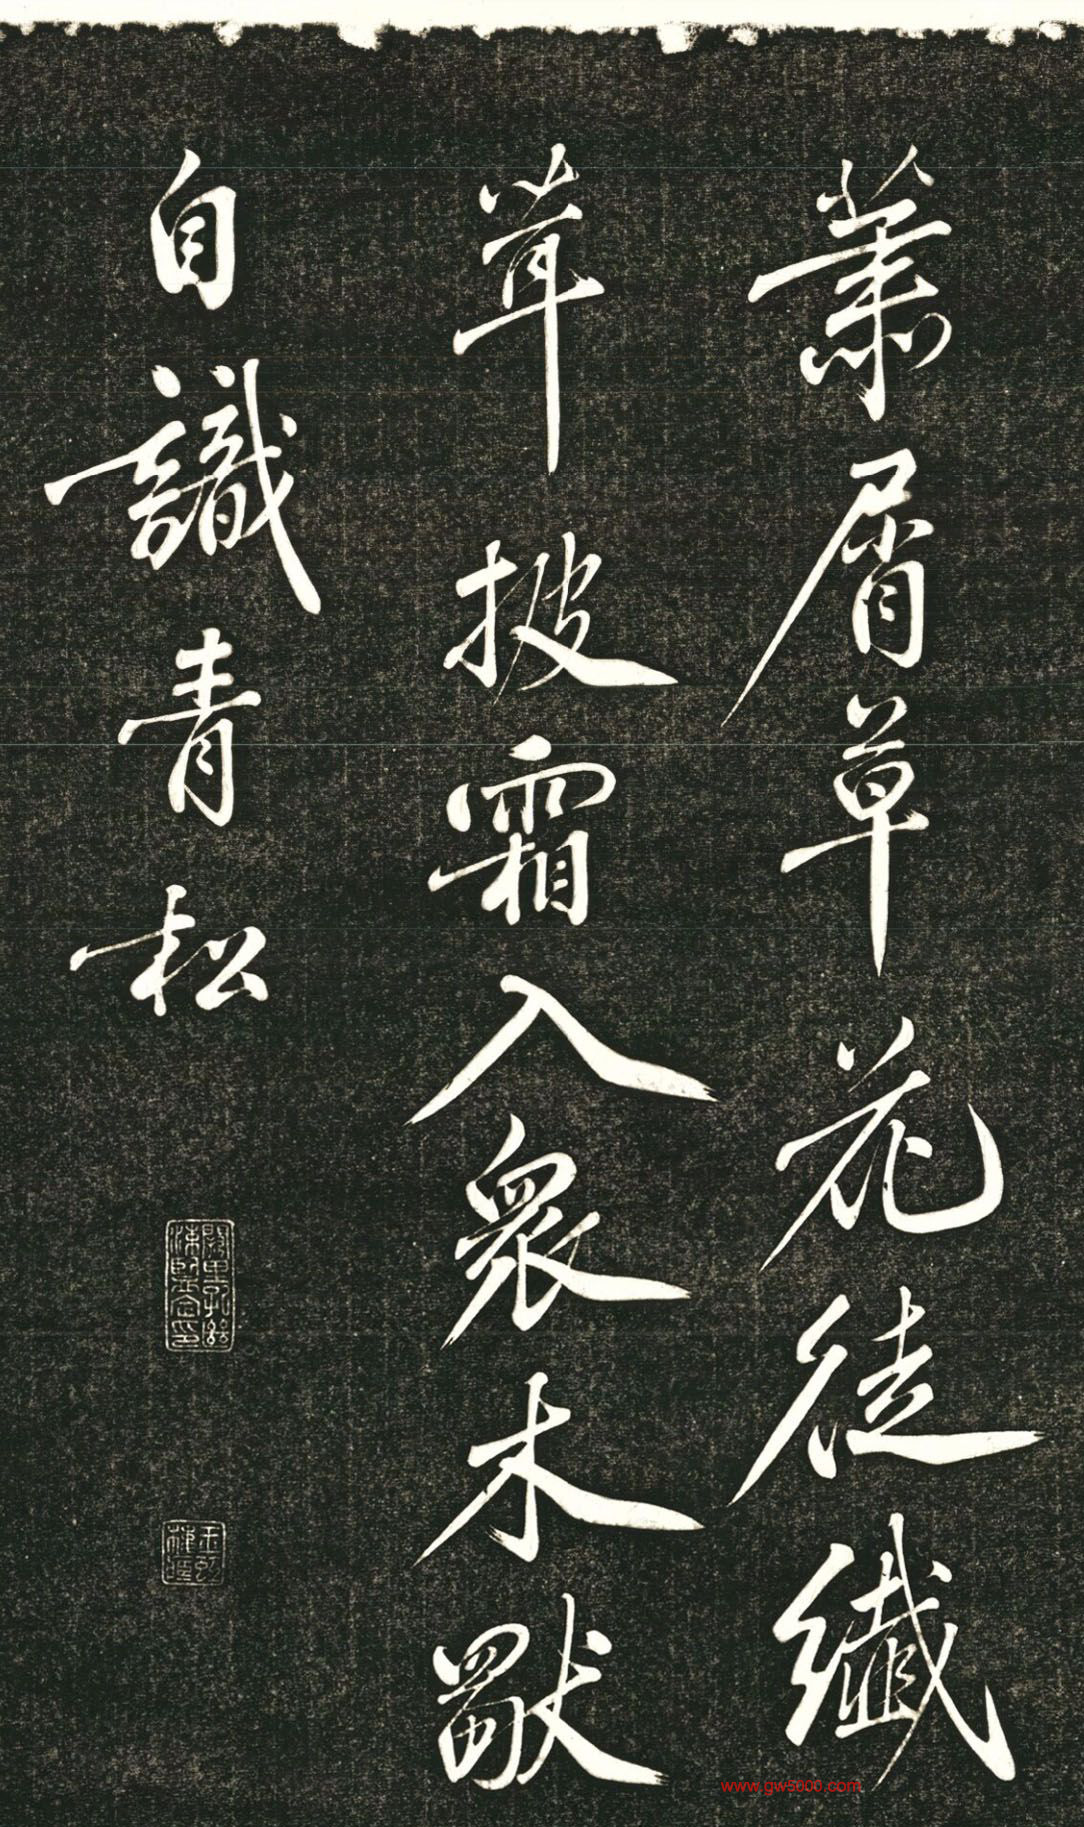 蕭屑草花徒纖
茸披霜入眾木獨
自識青松
www.gw5000.com